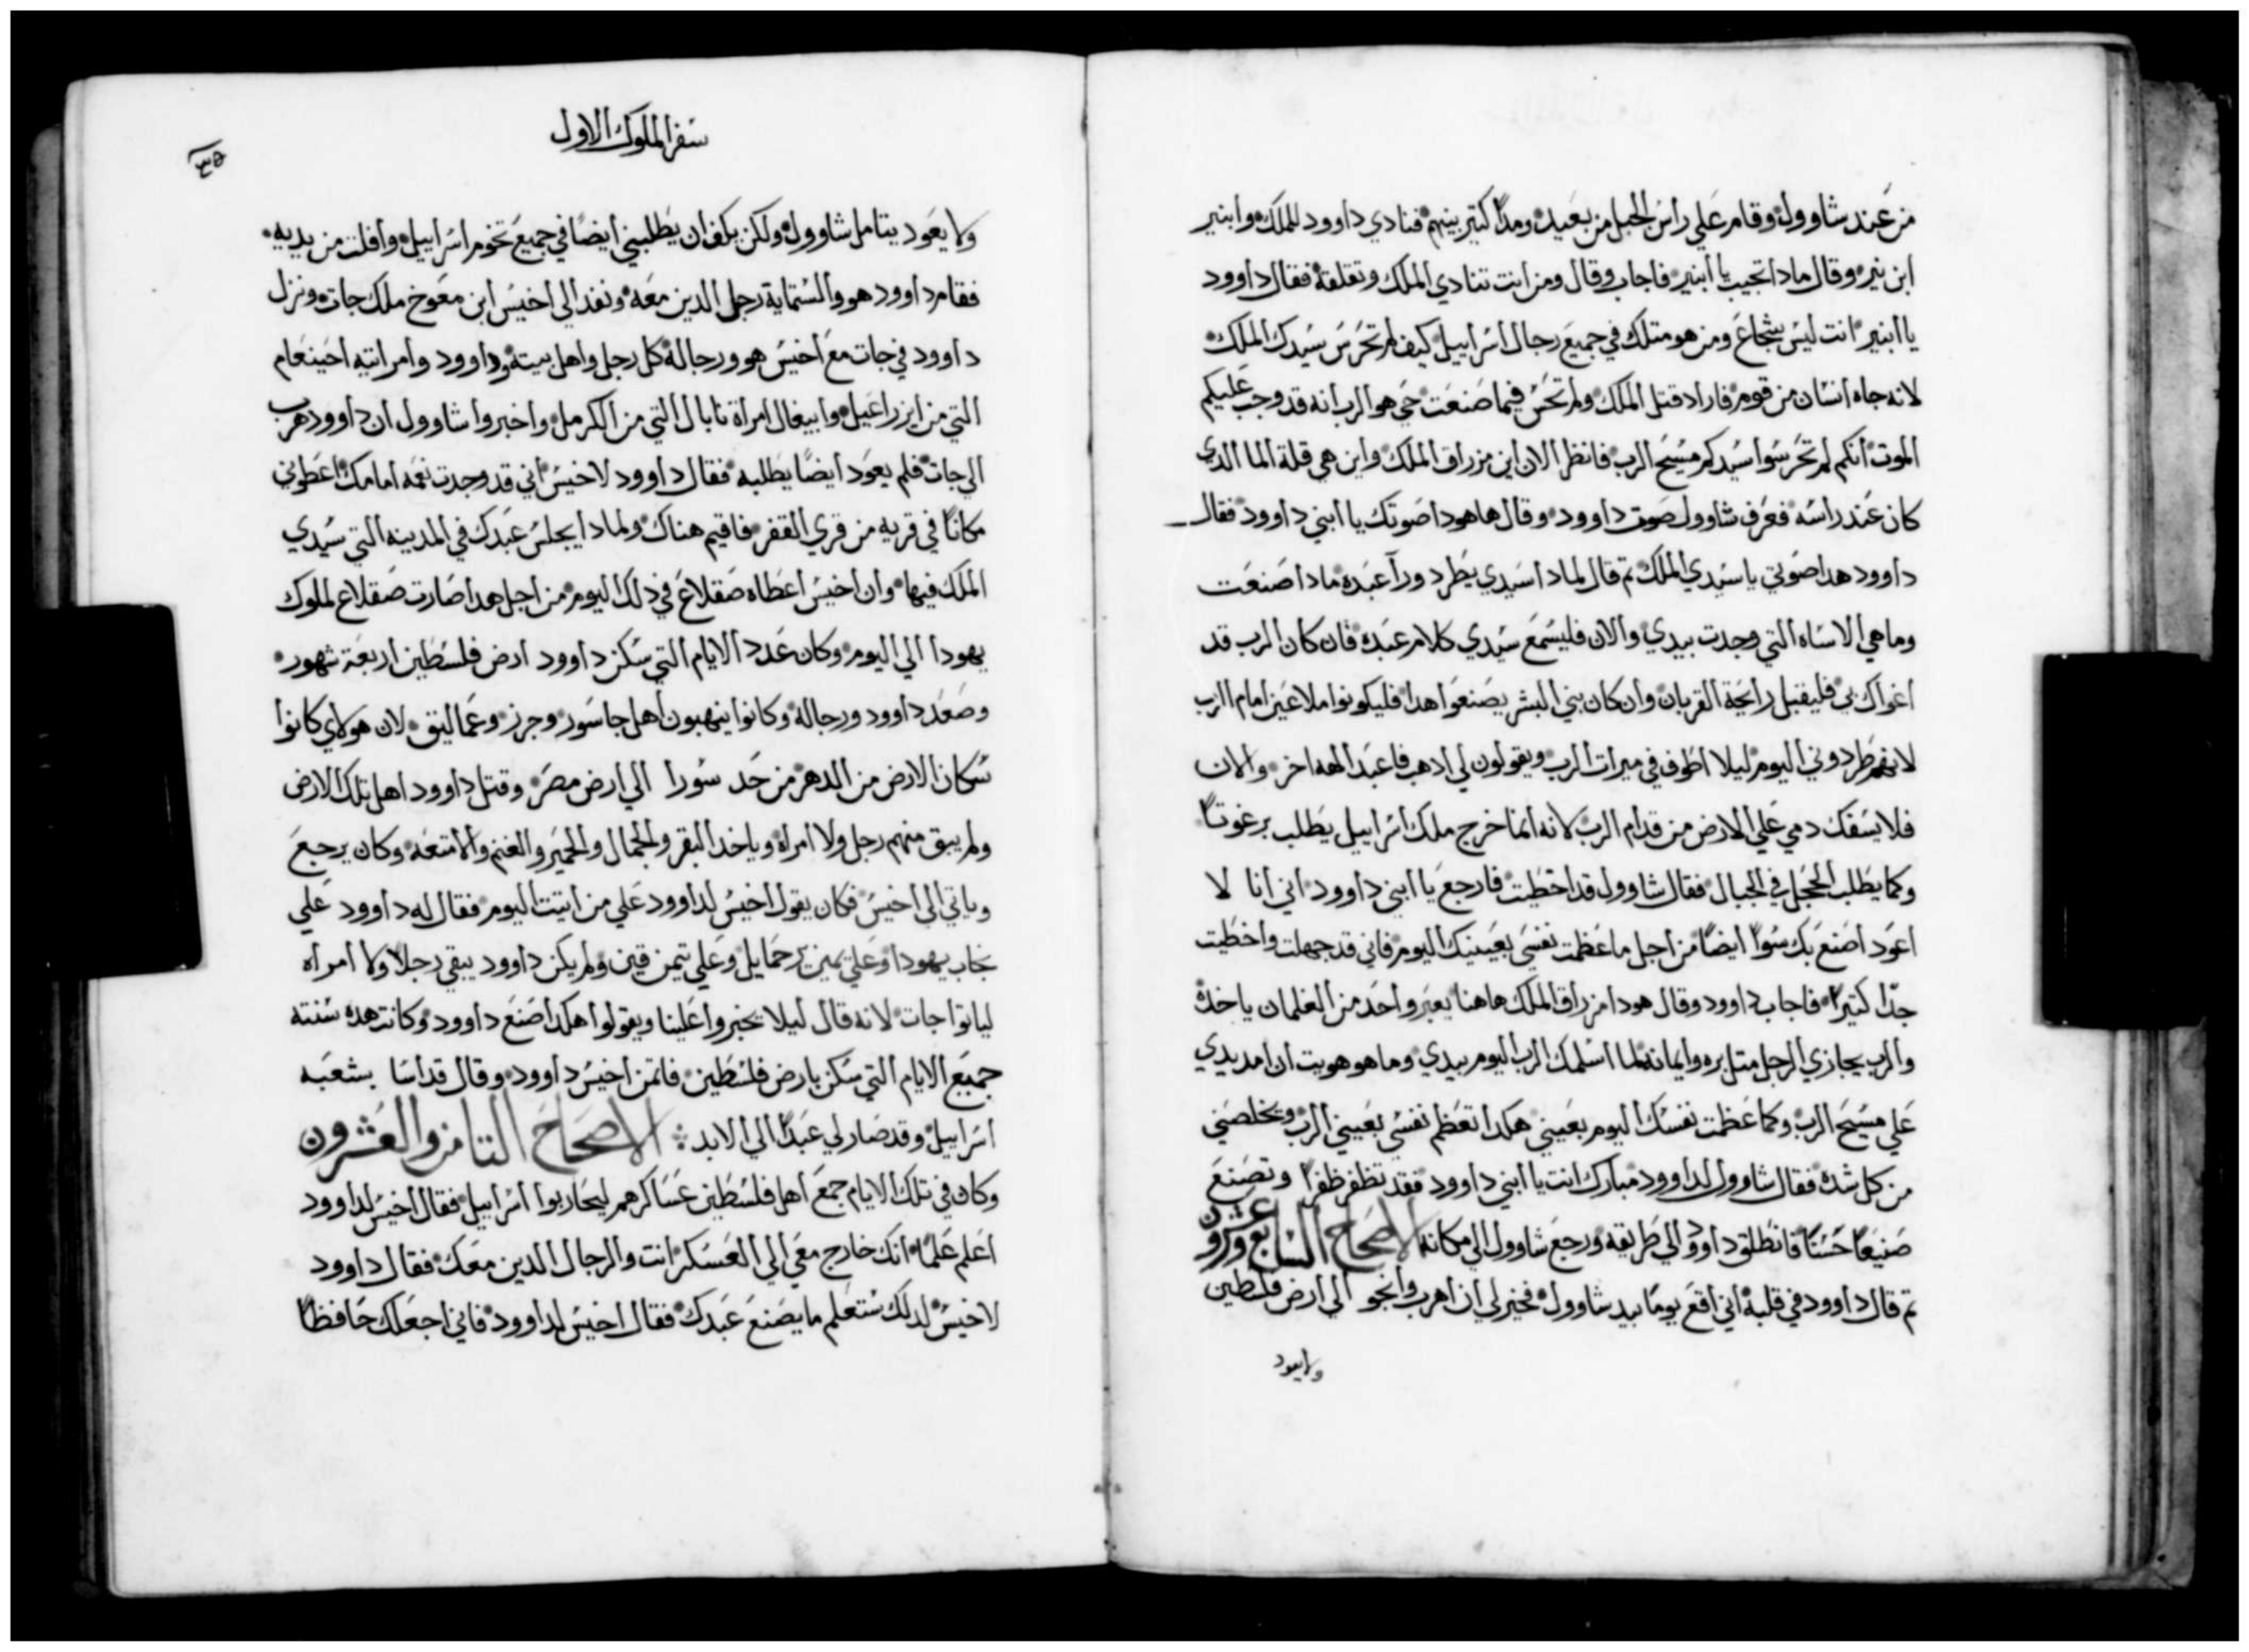 من عند شاوول وقام علي راس الجبل من بعيد ومدا كتير بينهم فنادي داوود للملك وابنير
ابن نير وقال مادا تجيب يا ابنير فاجاب وقال ومن انت تنادي الملك وتقلقه فقال داوود
يا ابنير انت ليس بشجاع ومن هو متلك في جميع رجال اسراييل كيف لم تحرس سيدك الملك
لانه جاه انسان من قومه فاراد قتل الملك ولم تحس فيما صنعت حي هو الرب انه قد وجب عليكم
الموت انكم لم تحرسوا سيدكم مسيح الرب فانظر الان اين مزراق الملك واين هي قلة الما الدي
كان عند راسه فعرف شاوول صوت داوود وقال هاهودا صوتك يا ابني داوود فقال
داوود هدا صوتي يا سيدي الملك تم قال لمادا سيدي يطرد ورآ عبده مادا صنعت
وما هي الاساه التي وجدت بيدي والان فليسمع سيدي كلام عبده فان كان الرب قد
اغواك بي فليقبل رايحة القربان وان كان بني البشر يصنعوا هدا فليكونوا ملاعين امام الرب
لانهم طردوني اليوم ليلا اطوف في ميرات الرب ويقولون لي ادهب فاعبد الهه اخر والان
فلا يسفك دمي علي الارض من قدام الرب لانه انما خرج ملك اسراييل يطلب برغوتا
وكما يطلب الحجل في الجبال فقال شاوول قد اخطيت فارجع يا ابني داوود اني انا لا
اعود اصنع بك سوا ايضا من اجل ما عظمت نفسي بعينيك اليوم فاني قد جهلت واخطيت
جدا كتيرا فاجاب داوود وقال هودا مزراق الملك هاهنا يعبر واحد من الغلمان ياخده
والرب يجازي الرجل متل بره وايمانه لما اسلمك الرب اليوم بيدي وما هو هويت ان امد يدي
علي مسيح الرب وكما عظمت نفسك اليوم بعيني هكدا تعظم نفسي بعيني الرب وتخلصني
من كل شده فقال شاوول لداوود مبارك انت يا ابني داوود فقد تظفر ظفرا وتصنع
صنيعا حسنا فانطلق داوود الي طريقه ورجع شاوول الي مكانه الاصحاح السابع وعشرون
تم قال داوود في قلبه اني اقع يوما بيد شاوول فخير لي ان اهرب وانجو الي ارض فلسطين
ولا يعود
سفر الملوك الاول
٣٥
ولا يعود يتامل شاوول ولكن يكف ان يطلبني ايضا في جميع تخوم اسراييل وافلت من يديه
فقام داوود هو والستماية رجل الدين معه ونفد الي اخيس ابن معوخ ملك جات ونزل
داوود في جات مع اخيس هو ورجاله كل رجل واهل بيته وداوود وامراتيه احينعام
التي من ايزراعيل وابيغال امراة نابال التي من الكرمل واخبروا شاوول ان داوود هرب
الي جات فلم يعود ايضا يطلبه فقال داوود لاخيس اني قد وجدت نعمه امامك اعطوني
مكانا في قريه من قري القفر فاقيم هناك ولمادا يجلس عبدك في المدينه التي سيدي
الملك فيها وان اخيس اعطاه صقلاغ في دلك اليوم من اجل هدا صارت صقلاع لملوك
يهودا الي اليوم وكان عدد الايام التي سكن داوود ارض فلسطين اربعة شهور
وصعد داوود ورجاله وكانوا ينهبون اهل جاسور وجرز وعماليق لان هولاي كانوا
سكان الارض من الدهر من حد سورا الي ارض مصر وقتل داوود اهل تلك الارض
ولم يبق منهم رجل ولا امراه وياخد البقر والجمال والحمير والغنم والامتعه وكان يرجع
وياتي الي اخيس فكان يقول اخيس لداوود علي من اتيت اليوم فقال له داوود علي
يهودا وعلي تيمن يرحماييل وعلي تيمن قين ولم يكن داوود يبقي رجلا ولا امراه
لياتوا جات لانه قال ليلا يخبروا علينا ويقولوا هكدا صنع داوود وكانت هده سنته
جميع الايام التي سكن بارض فلسطين فاتمن اخيس داوود وقال قد اسا بشعبه
اسراييل وقد صار لي عبدا الي الابد الاصحاح التامن والعشرون
وكان في تلك الايام جمع اهل فلسطين عساكرهم ليحاربوا اسراييل فقال اخيس لداوود
اعلم علما انك خارج معي الي العسكر انت والرجال الدين معك فقال داوود
لاخيس لدلك ستعلم ما يصنع عبدك فقال اخيس لداوود فاني اجعلك حافظا